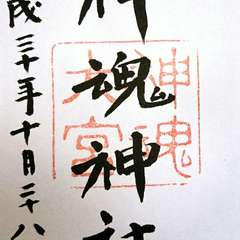 神魂神社
神魂
大宮
成三十年十月二十八